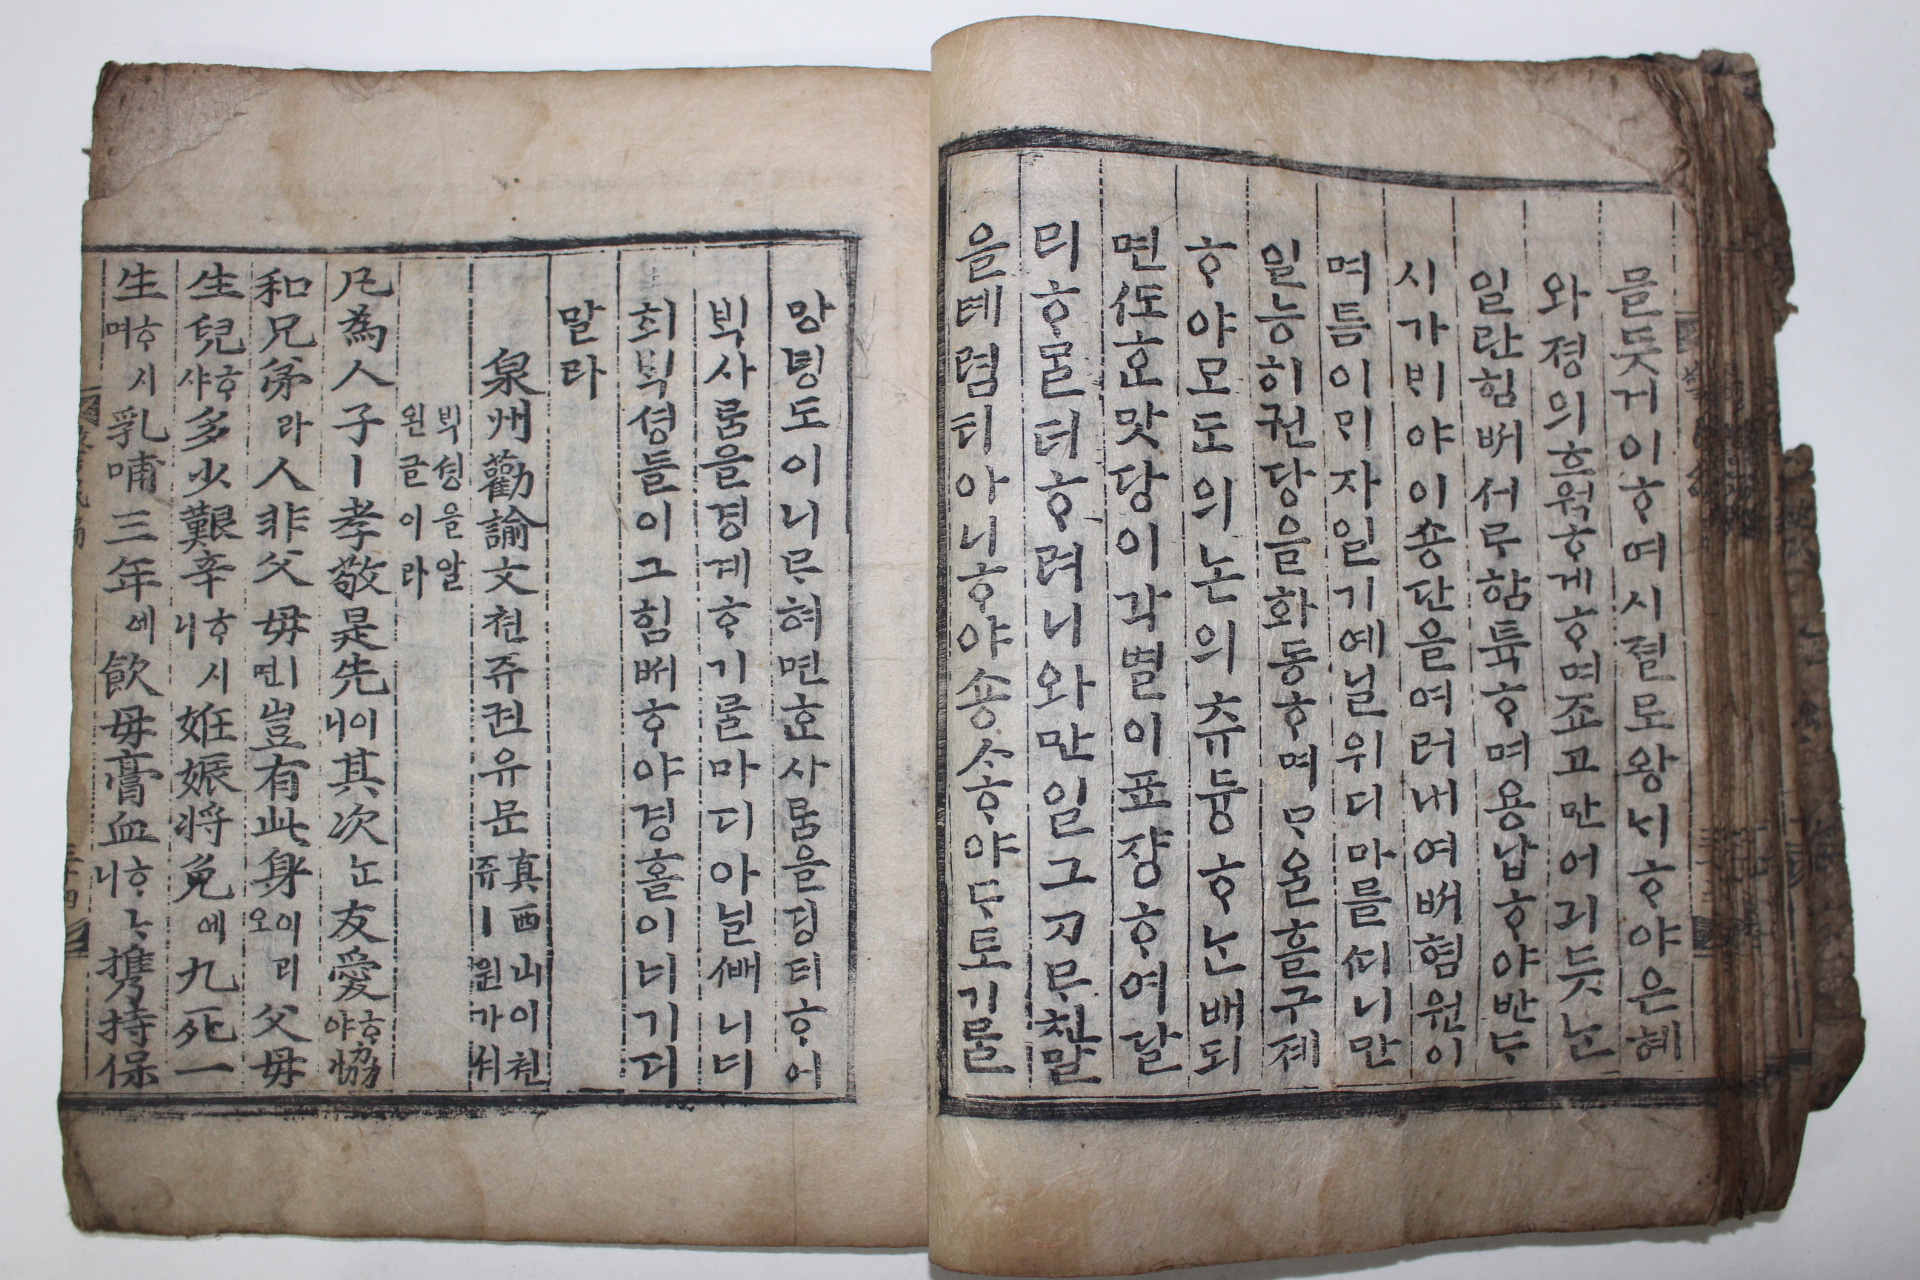 믈듯게이ᄒᆞ며시졀로왕ᄂᆡᄒᆞ야은혜
와졍의흐웍ᄒᆞ게ᄒᆞ며죠고만어긔듯ᄂᆞᆫ
일란힘ᄡᅥ서ᄅᆞ함튝ᄒᆞ며용납ᄒᆞ야반ᄃᆞ
시가ᄇᆡ야이숑단을여러내여ᄡᅥ혐원이
며틈이ᄆᆡ자일기예닐위디마를ᄯᅵ니만
일능히권당을화동ᄒᆞ며ᄆᆞᄋᆞᆯ흘구졔
ᄒᆞ야모도의논의츄듕ᄒᆞᄂᆞᆫ배되
면ᄯᅩᄒᆞᆫ맛당이각별이표쟝ᄒᆞ여달
리ᄒᆞᄆᆞᆯ더ᄒᆞ려니와만일그ᄀᆞᄅᆞ친말
을톄렴티아니ᄒᆞ야숑ᄉᆞᄒᆞ야ᄃᆞ토기ᄅᆞᆯ
망령도이니ᄅᆞ혀면ᄒᆞᆫ사ᄅᆞᆷ을딩티ᄒᆞ여
ᄇᆡᆨ사ᄅᆞᆷ을경계ᄒᆞ기ᄅᆞᆯ마디아닐ᄯᅢ니너
희ᄇᆡᆨ셩들이그힘ᄡᅥᄒᆞ야경홀이너기디
말라
泉州勸諭文쳔쥬권유문真西山이쳔쥬ㅣ원가셔
ᄇᆡᆨ셩을알왼글이라
凡為人子ㅣ孝敬是先이니其次ᄂᆞᆫ友愛ᄒᆞ야協
和兄弟라人非父母ㅣ면豈有此身이리오父母
生兒ᄒᆞ샤多少艱辛ᄒᆞ시니妊娠將免에九死一
生ᄒᆞ시며乳哺三年에飮母膏血ᄒᆞᄂᆞ니携持保